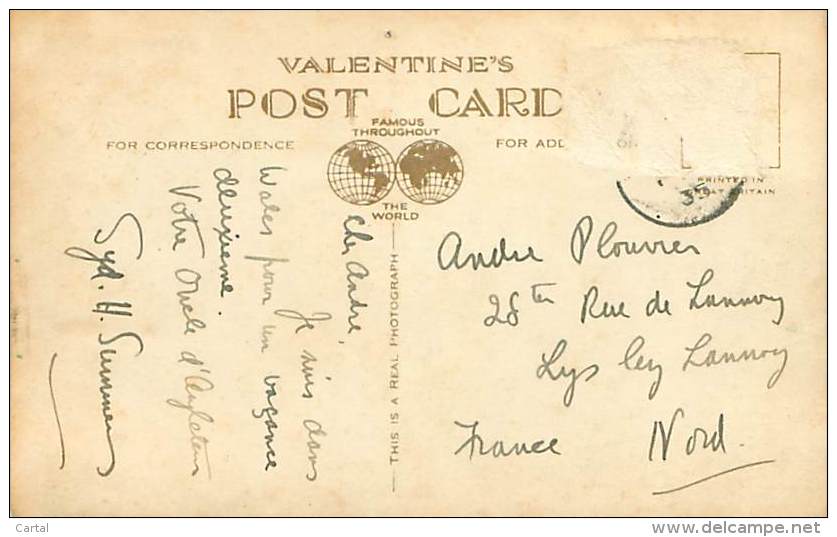 VALENTINE'S
POST CARD
FAMOUS
THROUGHOUT
THE
WORLD
FOR CORRESPONDENCE
FOR ADD
PRINTED IN
GREAT BRITAIN
35
THIS IS A REAL PHOTOGRAPH
Cher André,
Je suis dans
Wales pour un vacance
deuxieme.
Votre Oncle d'Angleterre
Syd. H. Summers
Andre Plouvier
28 ter Rue de Lannoy
Lys lez Lannoy
France Nord.
Cartal
delcampe.net